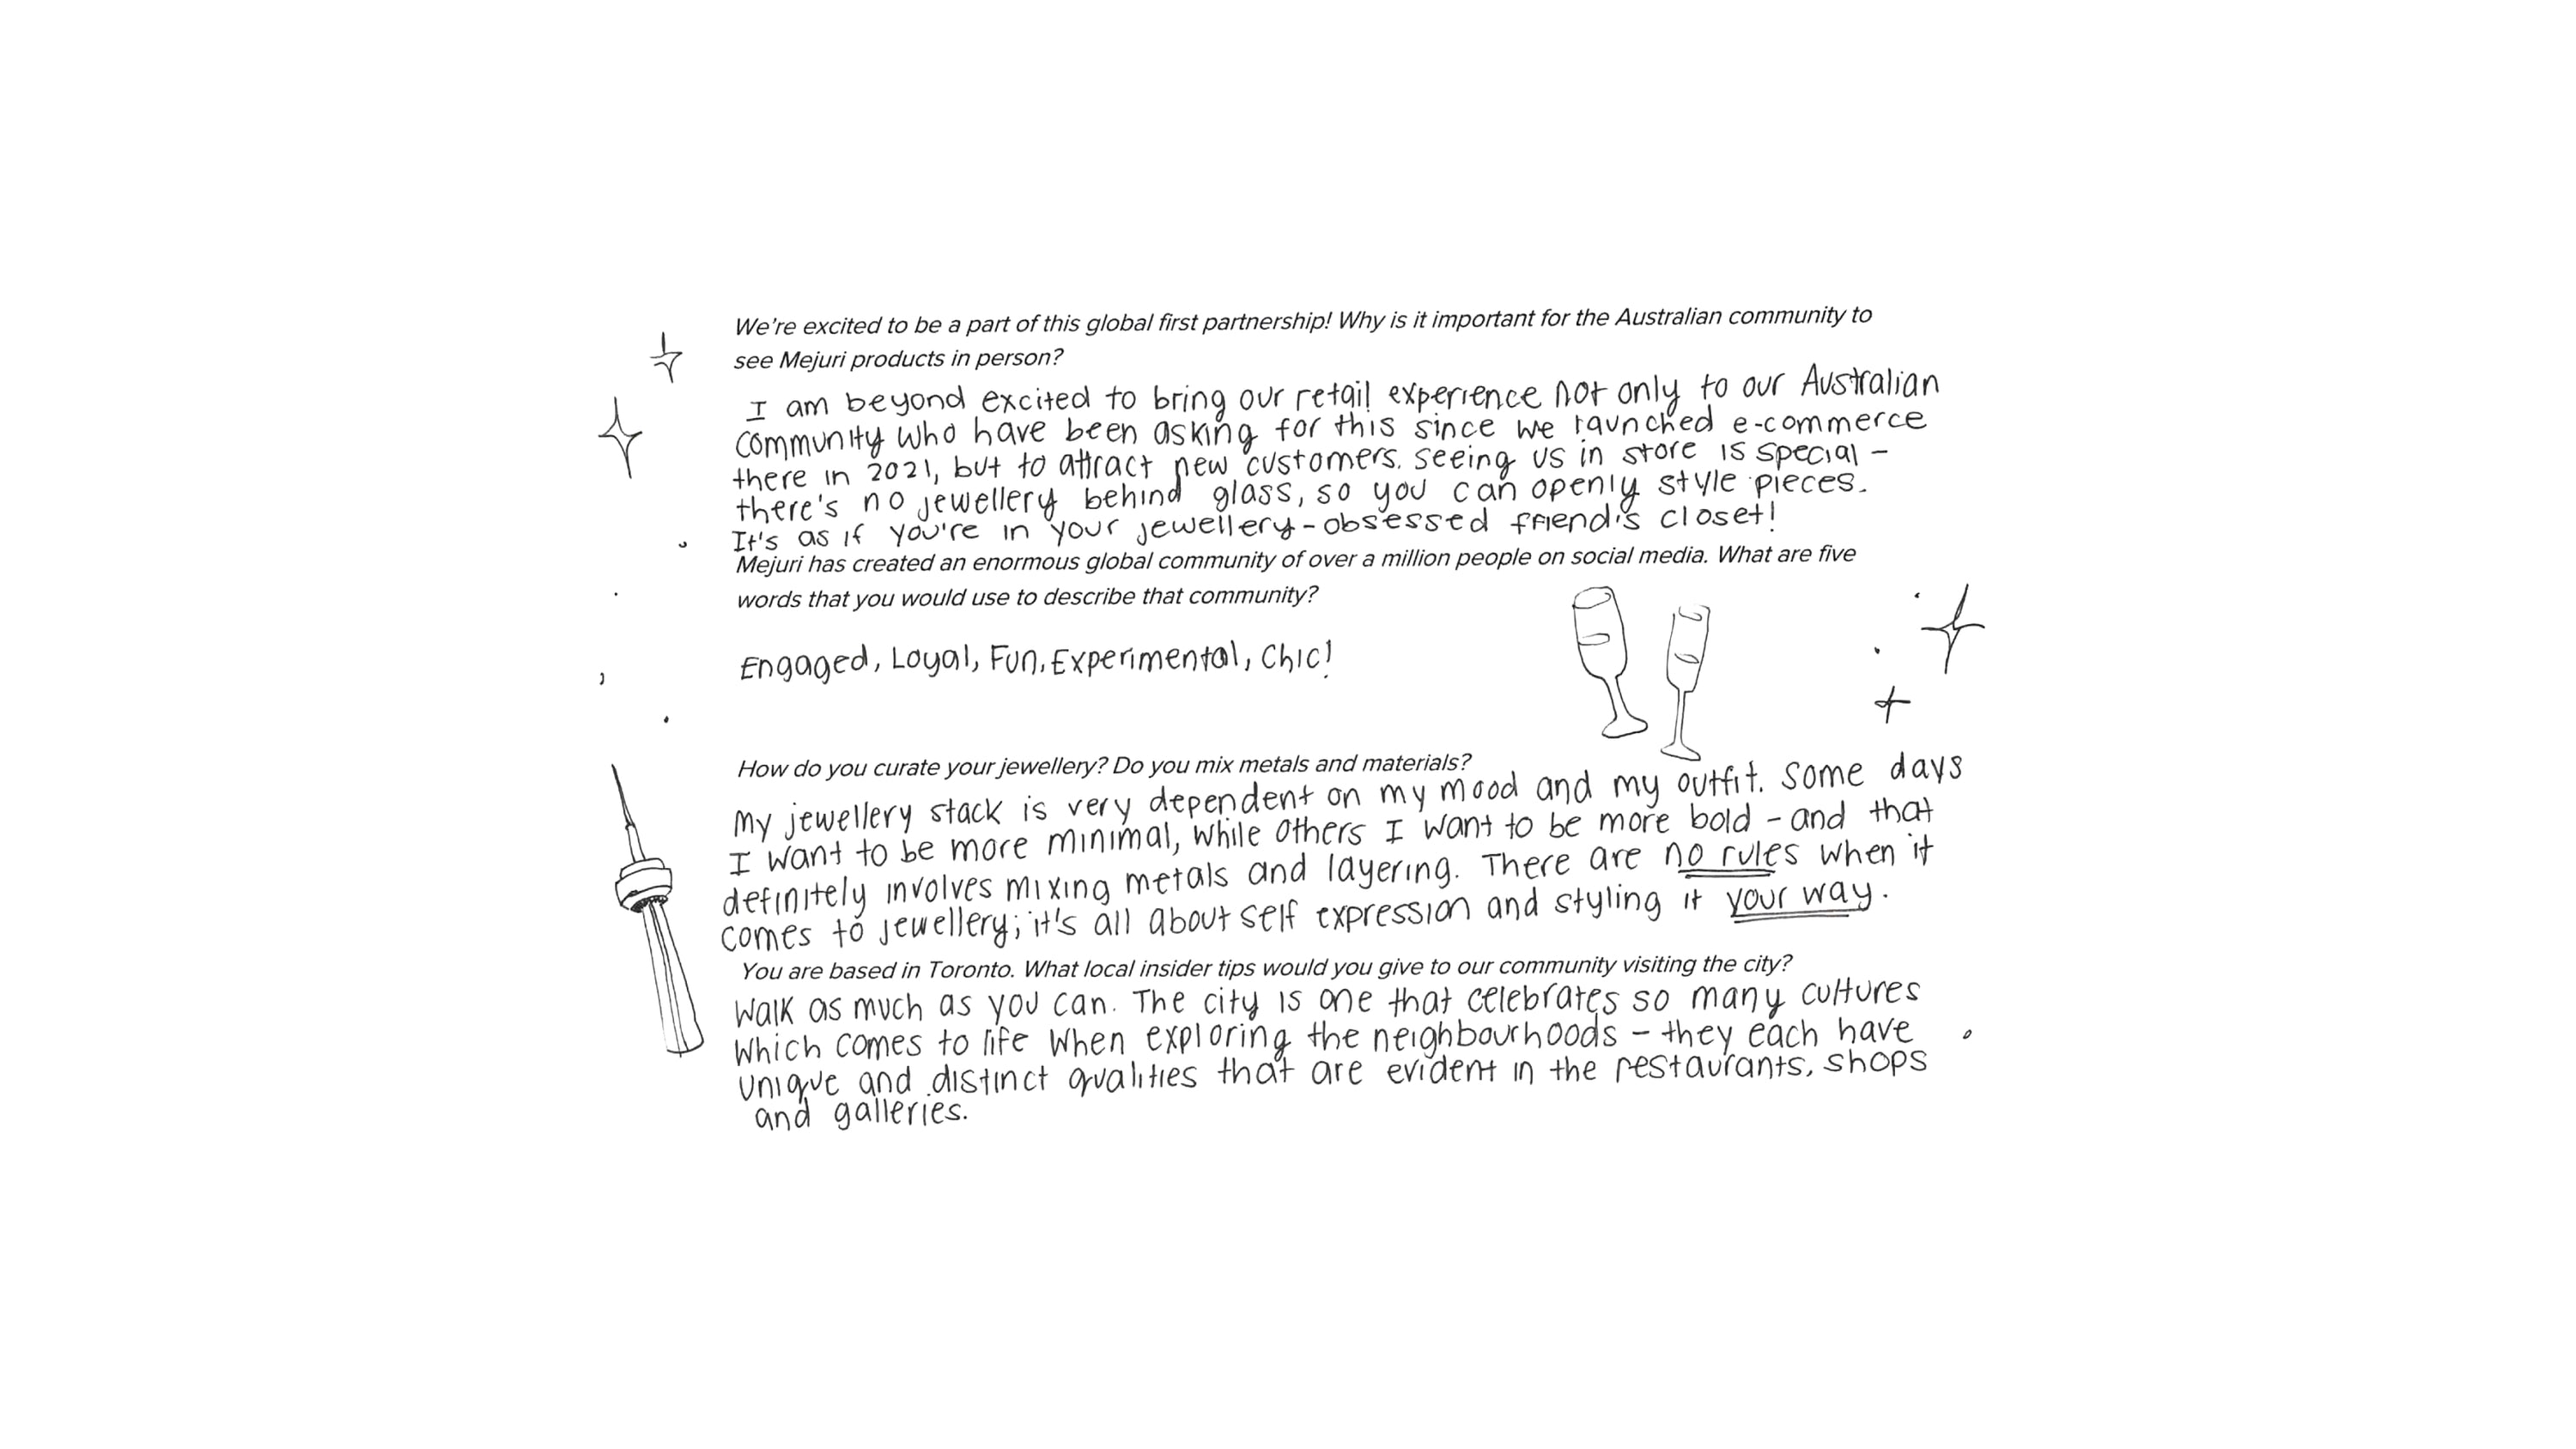 We're excited to be a part of this global first partnership! Why is it important for the Australian community to
see Mejuri products in person?
I am beyond excited to bring our retail experience not only to our Australian
community who have been asking for this since we launched e-commerce
there in 2021, but to attract new customers. seeing us in store is special -
there's no jewellery behind glass, so you can openly style pieces.
It's as if you're in your jewellery-obsessed friend's closet!
Mejuri has created an enormous global community of over a million people on social media. What are five
words that you would use to describe that community?
Engaged, Loyal, Fun, Experimental, Chic!
How do you curate your jewellery? Do you mix metals and materials?
My jewellery stack is very dependent on my mood and my outfit. Some days
I want to be more minimal, while others I want to be more bold - and that
definitely involves mixing metals and layering. There are no rules when it
comes to jewellery; it's all about self expression and styling it your way.
You are based in Toronto. What local insider tips would you give to our community visiting the city?
Walk as much as you can. The city is one that celebrates so many cultures
which comes to life when exploring the neighbourhoods - they each have
unique and distinct qualities that are evident in the restaurants, shops
and galleries.